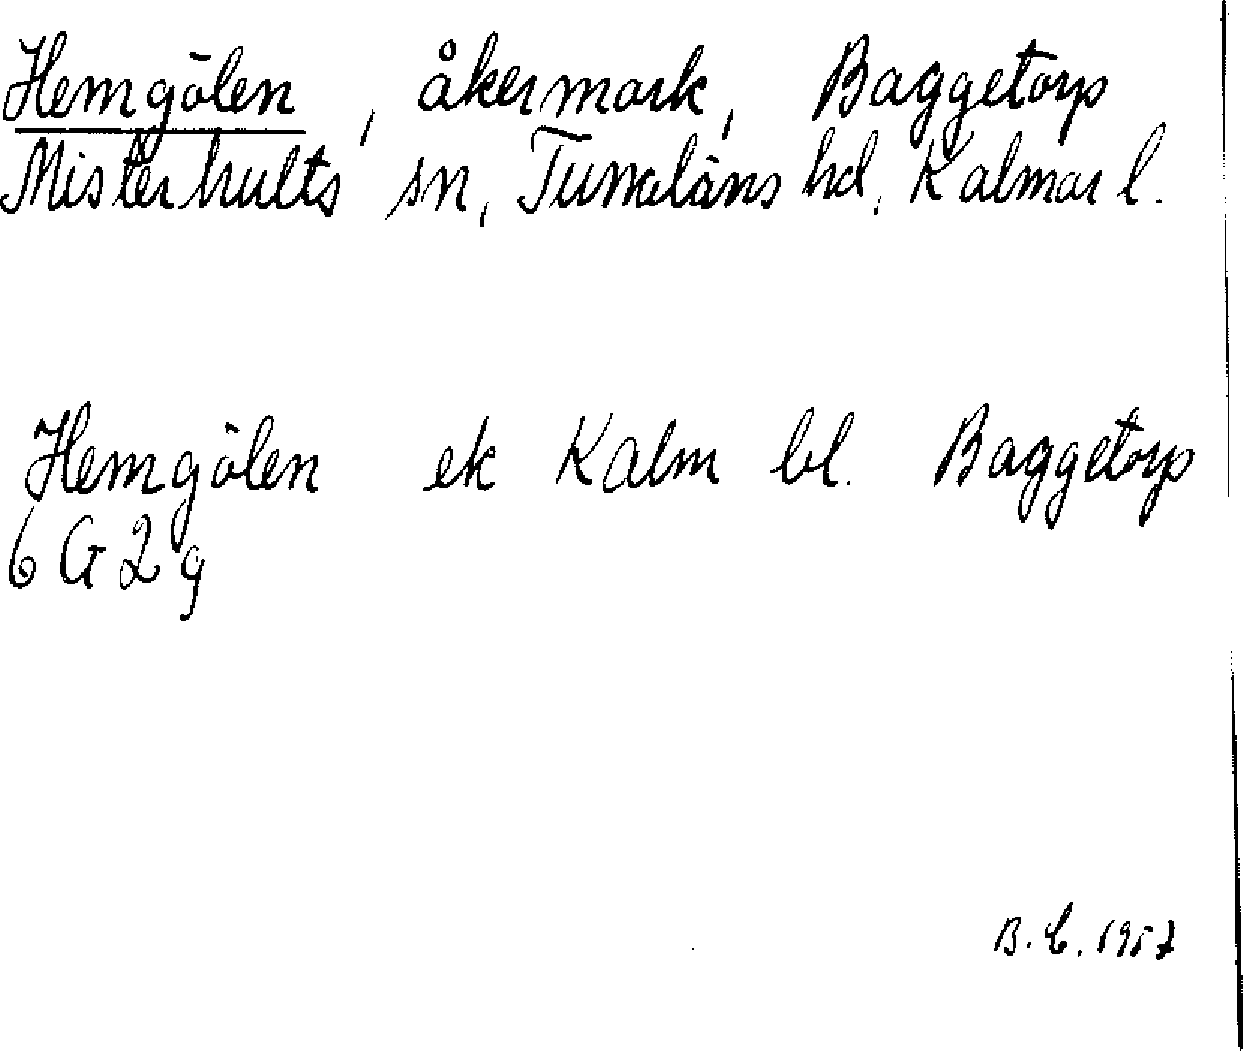 Hemgölen, åkermark, Baggetorp
Misterhults sn, Tunaläns hd, Kalmar l.
Hemgölen ek Kalm bl. Baggetorp
6 G 2 g
B. C. 1957